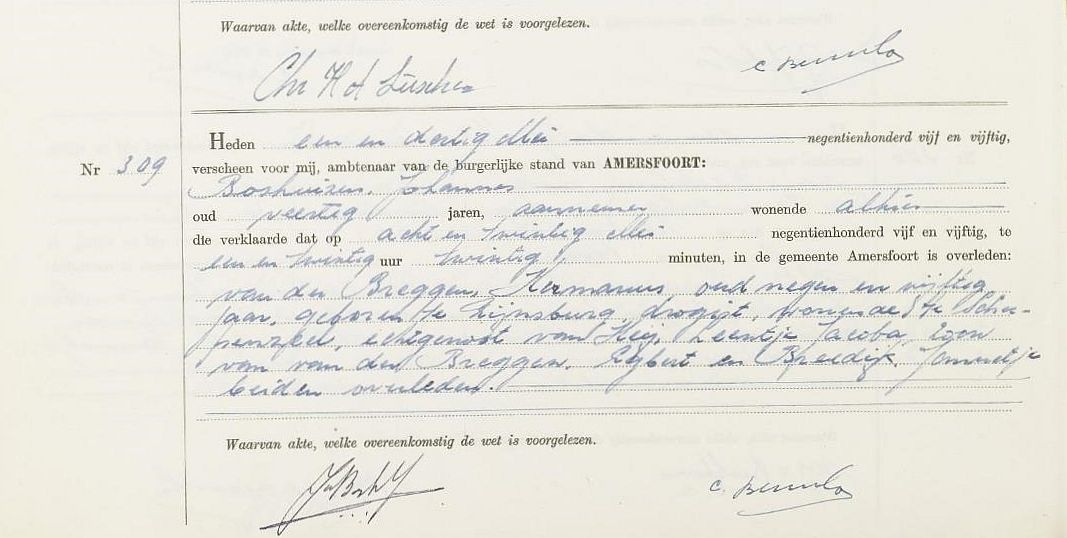 Waarvan akte, welke overeenkomstig de wet is voorgelezen.
Nr 309
Heden een en dertig Mei negentienhonderd vijf en vijftig,
verscheen voor mij, ambtenaar van de burgerlijke stand van AMERSFOORT:
Boshuizen, Johannes
oud veertig jaren, aannemer wonende alhier
die verklaarde dat op acht en twintig Mei negentienhonderd vijf en vijftig, te
een en twintig uur twintig minuten, in de gemeente Amersfoort is overleden:
van der Breggen, Hermanus, oud negen en vijftig
jaar, geboren te Rijnsburg, drogist, wonende te Scher-
penzeel, echtgenoot van Heij, Leentje Jacoba, zoon
van van der Breggen, Egbert en Jannetje
beiden overleden.
Waarvan akte, welke overeenkomstig de wet is voorgelezen.